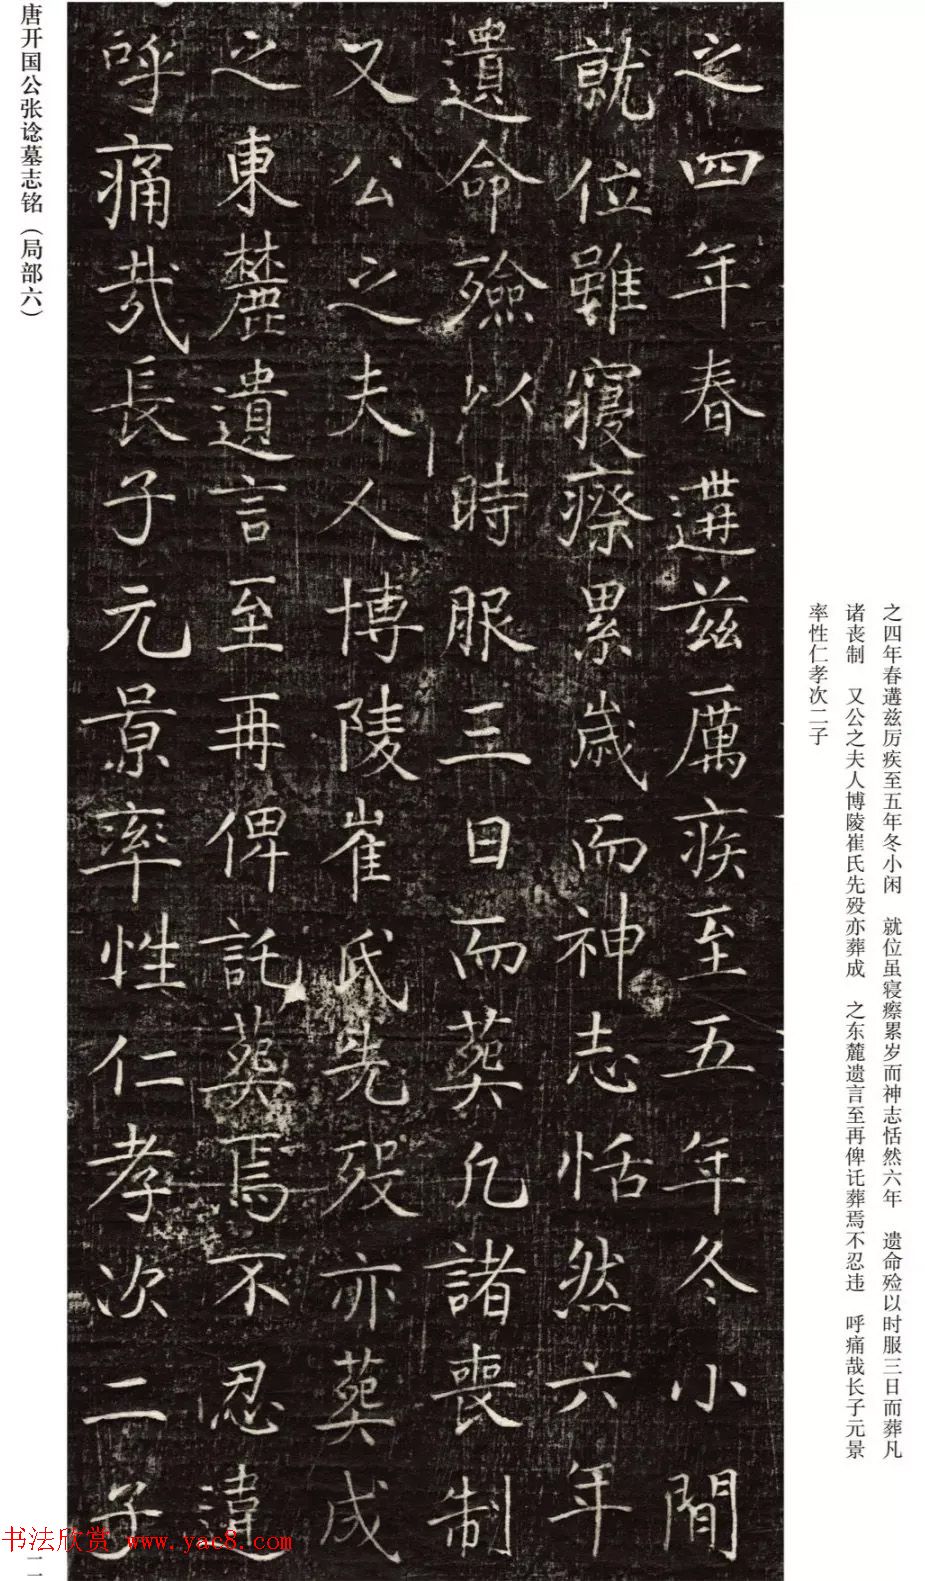 之四年春遘兹厲疾至五年冬小閒
就位雖寢瘵累歲而神志恬然六年
遺命殮以時服三日而葬凡諸喪制
又公之夫人博陵崔氏先歿亦葬成
之東麓遺言至再俾託葬焉不忍違
呼痛哉長子元景率性仁孝次二子
之四年春遘兹厉疾至五年冬小闲　就位虽寝瘵累岁而神志恬然六年　遗命殓以时服三日而葬凡
诸丧制　又公之夫人博陵崔氏先殁亦葬成　之东麓遗言至再俾讬葬焉不忍违　呼痛哉长子元景
率性仁孝次二子
唐开国公张谂墓志铭（局部六）
书法欣赏 www.yac8.com